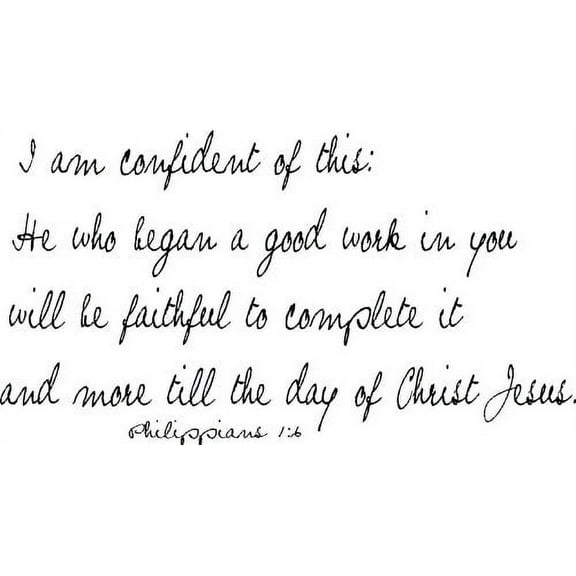 I am confident of this:
He who began a good work in you
will be faithful to complete it
and more till the day of Christ Jesus.
Philippians 1:6